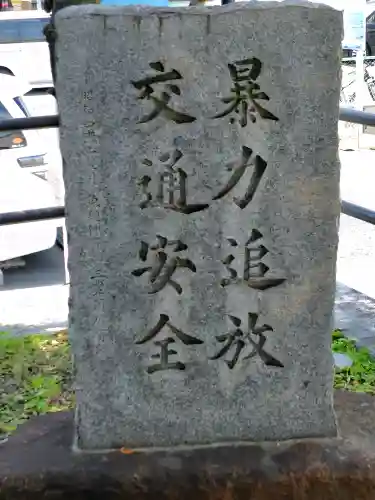 暴力追放
交通安全